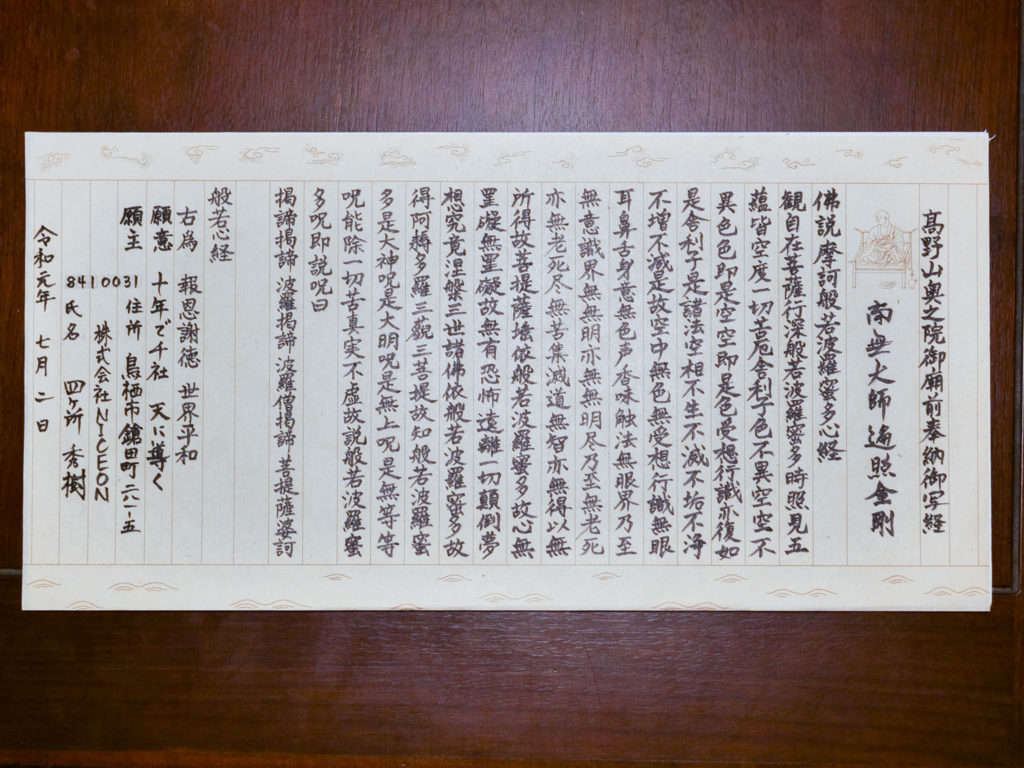 高野山奥之院御廟前奉納御写経
南無大師遍照金剛
佛説摩訶般若波羅蜜多心経
観自在菩薩行深般若波羅蜜多時照見五
蘊皆空度一切苦厄舎利子色不異空空不
異色色即是空空即是色受想行識亦復如
是舎利子是諸法空相不生不滅不垢不浄
不増不減是故空中無色無受想行識無眼
耳鼻舌身意無色声香味触法無眼界乃至
無意識界無無明亦無無明尽乃至無老死
亦無老死尽無苦集滅道無智亦無得以無
所得故菩提薩埵依般若波羅蜜多故心無
罣礙無罣礙故無有恐怖遠離一切顛倒夢
想究竟涅槃三世諸佛依般若波羅蜜多故
得阿耨多羅三藐三菩提故知般若波羅蜜
多是大神呪是大明呪是無上呪是無等等
呪能除一切苦真実不虚故説般若波羅蜜
多呪即説呪曰
掲諦掲諦 波羅掲諦 波羅僧掲諦 菩提薩婆訶
般若心経
右為 報恩謝徳 世界平和
願意 十年で千社 天に導く
願主 8410031 住所 鳥栖市鎗田町二八一-五
株式会社NICEON
氏名 四ヶ所 秀樹
令和元年 七月 二日